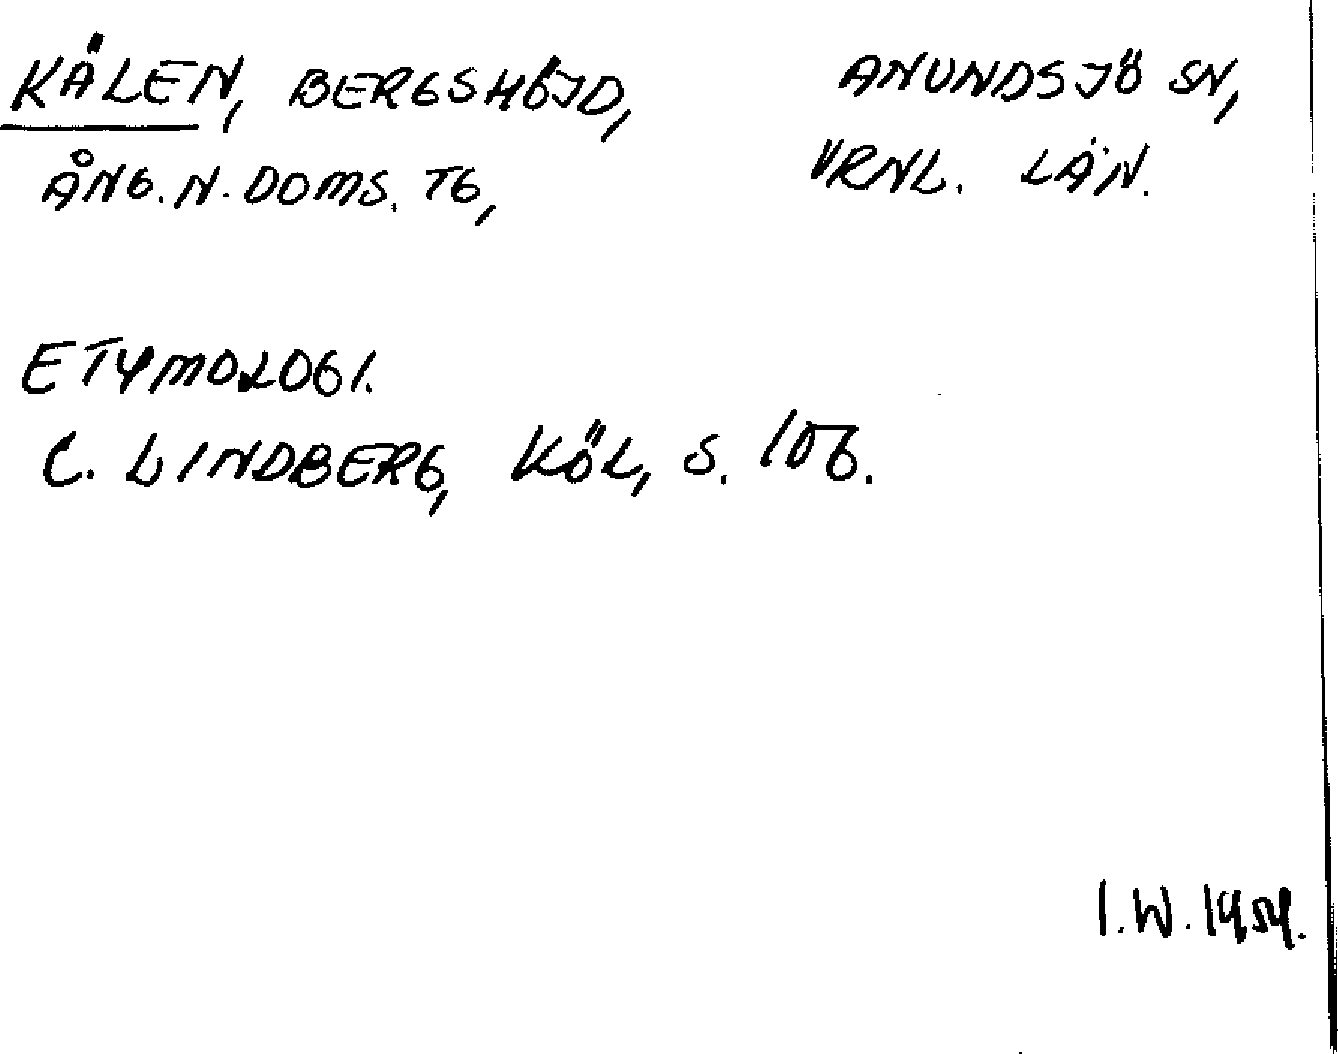 KÅLEN, BERGSHÖJD, ANUNDSJÖ SN,
ÅNG. N. DOMS. TG, VRNL. LÄN.
ETYMOLOGI.
C. LINDBERG, KÖL, S. 106.
I.W. 1954.